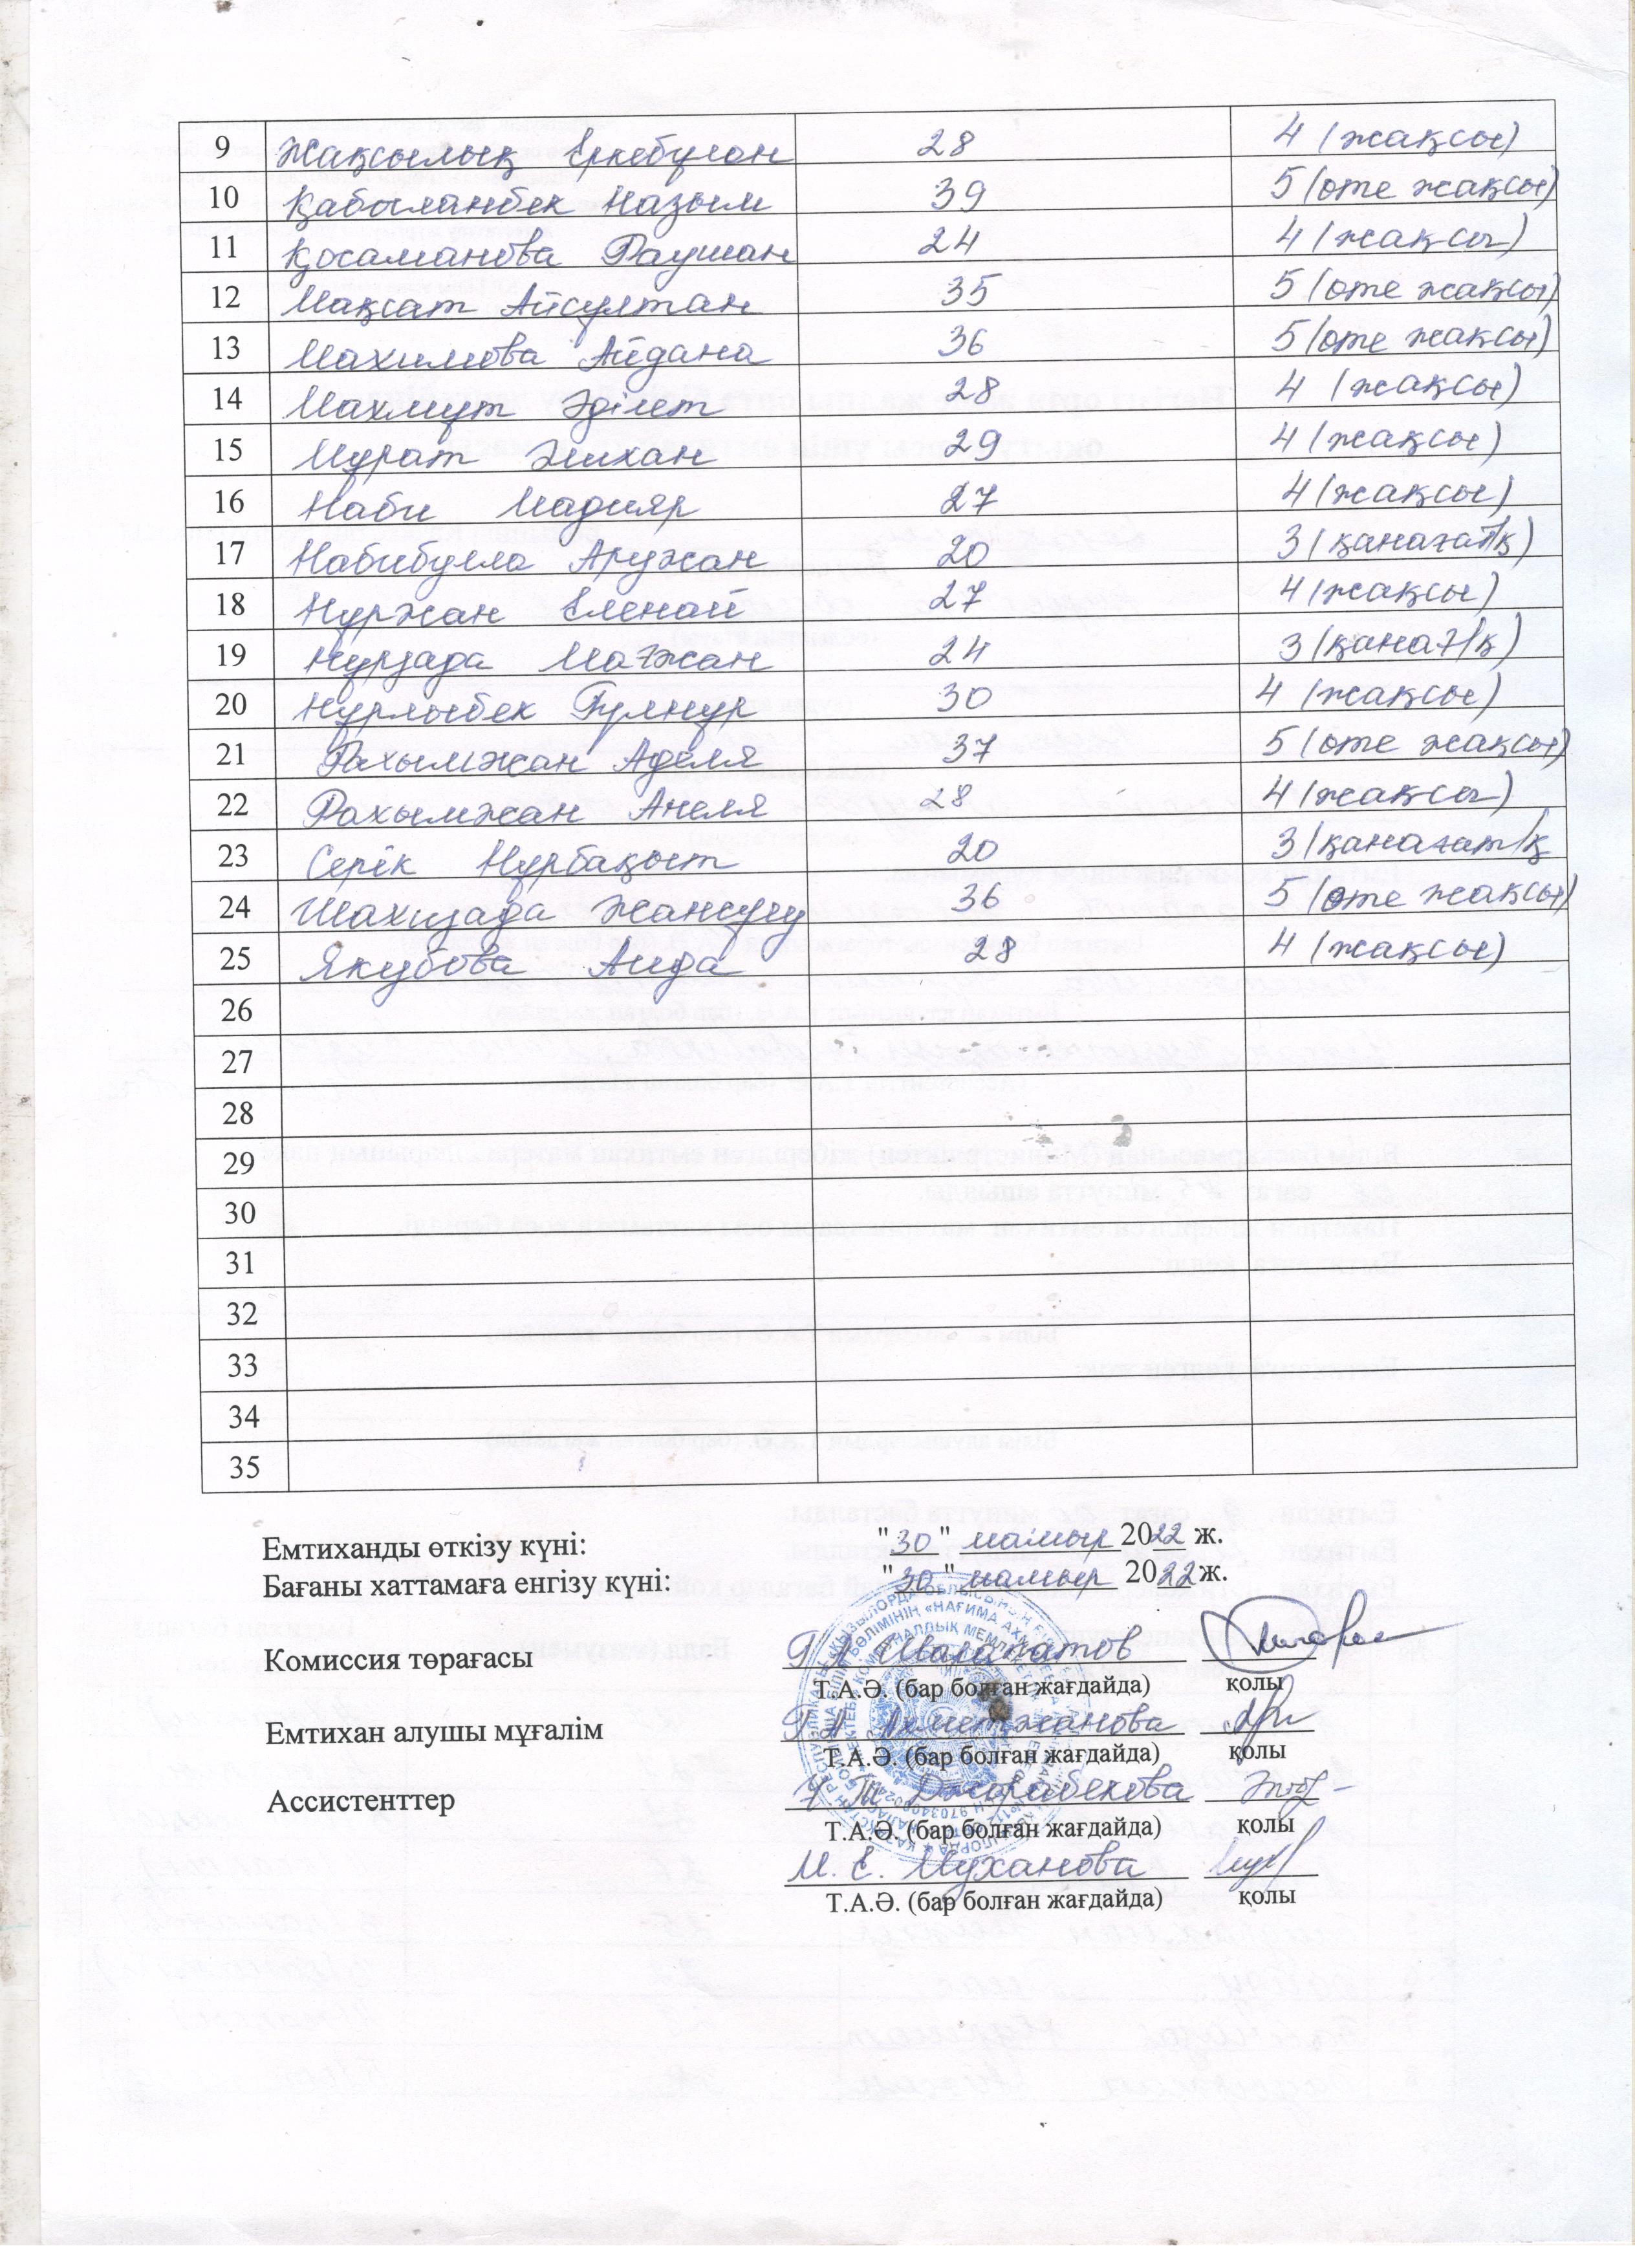 9 Жақсылық Еркебұлан 28 4 (жақсы)
10 Қабыланбек Назым 39 5 (өте жақсы)
11 Қосаманова Раушан 24 4 (жақсы)
12 Мақсат Айсұлтан 35 5 (өте жақсы)
13 Махимова Айдана 36 5 (өте жақсы)
14 Махмұт Әділет 28 4 (жақсы)
15 Мұрат Әлихан 29 4 (жақсы)
16 Наби Мадияр 27 4 (жақсы)
17 Набибулла Аружан 20 3 (қанағат/қ)
18 Нұржан Еленай 27 4 (жақсы)
19 Нұрзада Мағжан 24 3 (қанағ/қ)
20 Нұрлыбек Гүлнұр 30 4 (жақсы)
21 Рахымжан Аделя 37 5 (өте жақсы)
22 Рахымжан Анеля 28 4 (жақсы)
23 Серік Нұрбақыт 20 3 (қанағат/қ
24 Шахизада Жансұлу 36 5 (өте жақсы)
25 Якубова Аида 28 4 (жақсы)
26
27
28
29
30
31
32
33
34
35
Емтиханды өткізу күні: "30" мамыр 2022 ж.
Бағаны хаттамаға енгізу күні: "30" мамыр 2022 ж.
Комиссия төрағасы Ғ А Шарапатов
Т.А.Ә. (бар болған жағдайда) қолы
Емтихан алушы мұғалім Г А Ахметжанова
Т.А.Ә. (бар болған жағдайда) қолы
Ассистенттер Ұ Т Джорабекова
Т.А.Ә. (бар болған жағдайда) қолы
М. Е. Муханова
Т.А.Ә. (бар болған жағдайда) қолы